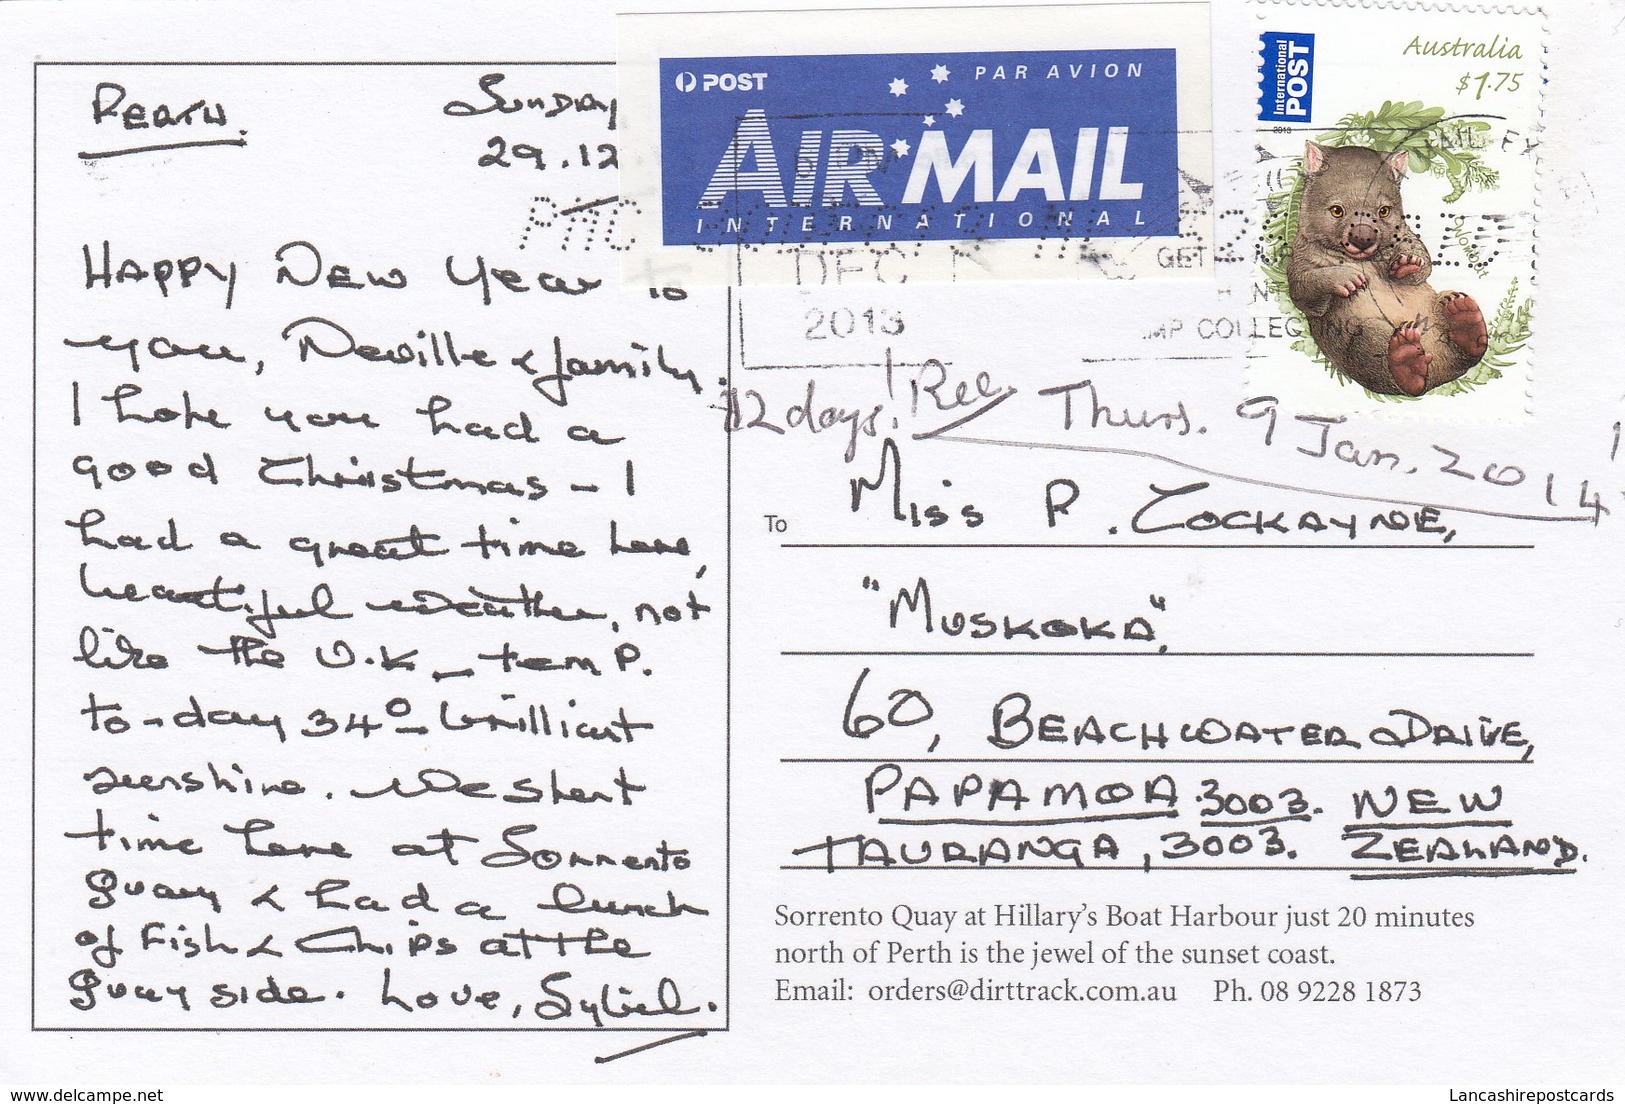 PERTH.
Sunday
29.12
HAPPY NEW Year to
you, Neville & family.
I hope you had a
good Christmas - I
had a great time here,
beautiful weather, not
like the U.K - temp.
to-day 34° - brilliant
sunshine. We spent
time here at Sorrento
Quay & had a lunch
of Fish & Chips at the
Quay side. Love, Sybil.
POST
PAR AVION
AIR MAIL
INTERNATIONAL
International
POST
Australia
$1.75
2013
Wombat
PM
DEC
2013
GET
COLLECTING
12 days! Rec. Thurs. 9 Jan. 2014
To
Miss P. COCKAYNE,
"MUSKOKA",
60, BEACHWATER DRIVE,
PAPAMOA 3003. NEW
TAURANGA, 3003. ZEALAND.
Sorrento Quay at Hillary's Boat Harbour just 20 minutes
north of Perth is the jewel of the sunset coast.
Email: orders@dirttrack.com.au Ph. 08 9228 1873
www.delcampe.net
Lancashirepostcards